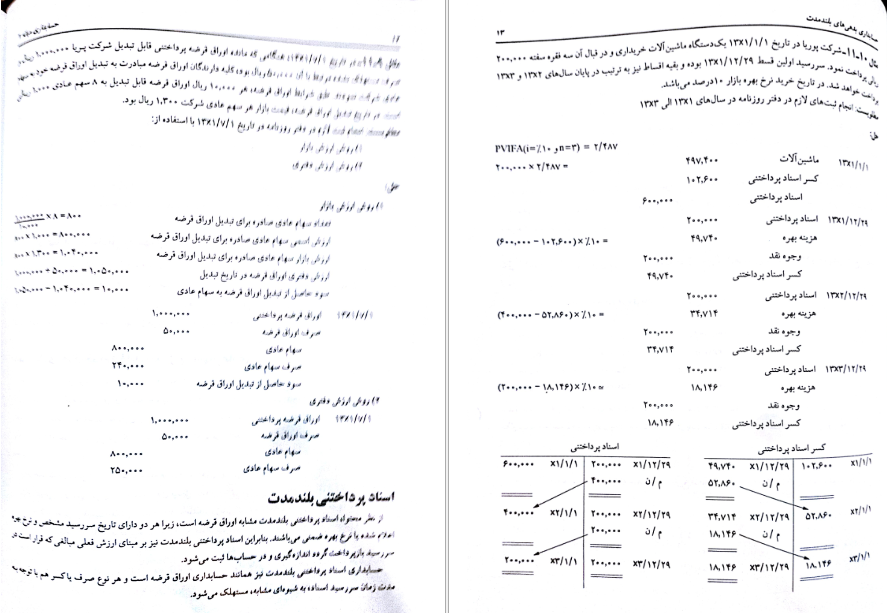 ۱۲
حسابداری میانه ۲
مثال ۱۰-۱۰- در تاریخ ۱۳×۱/۷/۱ هنگامی که مانده اوراق قرضه پرداختنی قابل تبدیل شرکت پریا ۱,۰۰۰,۰۰۰ ریال و
صرف ۵۰,۰۰۰ ریال بود، کلیه دارندگان اوراق قرضه مبادرت به تبدیل اوراق قرضه خود به سهام
شرایط اوراق قرضه، هر ۱۰,۰۰۰ ریال اوراق قرضه قابل تبدیل به ۸ سهم عادی ۱,۰۰۰ ریالی
است. در تاریخ تبدیل اوراق قرضه، قیمت بازار هر سهم عادی شرکت ۱,۳۰۰ ریال بود.
مطلوبست: در دفتر روزنامه در تاریخ ۱۳×۱/۷/۱ با استفاده از:
۱) روش ارزش بازار
۲) روش ارزش دفتری
حل:
۱) روش ارزش بازار
تعداد سهام عادی صادره برای تبدیل اوراق قرضه ۱,۰۰۰,۰۰۰/۱۰,۰۰۰ × ۸ = ۸۰۰
ارزش اسمی سهام عادی صادره برای تبدیل اوراق قرضه ۸۰۰ × ۱,۰۰۰ = ۸۰۰,۰۰۰
ارزش بازار سهام عادی صادره برای تبدیل اوراق قرضه ۸۰۰ × ۱,۳۰۰ = ۱,۰۴۰,۰۰۰
ارزش دفتری اوراق قرضه در تاریخ تبدیل ۱,۰۰۰,۰۰۰ + ۵۰,۰۰۰ = ۱,۰۵۰,۰۰۰
سود حاصل از تبدیل اوراق قرضه به سهام عادی ۱,۰۵۰,۰۰۰ − ۱,۰۴۰,۰۰۰ = ۱۰,۰۰۰
۱۳×۱/۷/۱ اوراق قرضه پرداختنی ۱,۰۰۰,۰۰۰
صرف اوراق قرضه ۵۰,۰۰۰
سهام عادی ۸۰۰,۰۰۰
صرف سهام عادی ۲۴۰,۰۰۰
سود حاصل از تبدیل اوراق قرضه ۱۰,۰۰۰
۲) روش ارزش دفتری
۱۳×۱/۷/۱ اوراق قرضه پرداختنی ۱,۰۰۰,۰۰۰
صرف اوراق قرضه ۵۰,۰۰۰
سهام عادی ۸۰۰,۰۰۰
صرف سهام عادی ۲۵۰,۰۰۰
اسناد پرداختنی بلندمدت
از نظر محتوا، اسناد پرداختنی بلندمدت مشابه اوراق قرضه است، زیرا هر دو دارای تاریخ سررسید مشخص و نرخ بهره
اعلام شده یا نرخ بهره ضمنی می‌باشند. بنابراین اسناد پرداختنی بلندمدت نیز بر مبنای ارزش فعلی مبالغی که قرار است در
سررسید بازپرداخت گردد اندازه‌گیری و در حساب‌ها ثبت می‌شود.
حسابداری اسناد پرداختنی بلندمدت نیز همانند حسابداری اوراق قرضه است و هر نوع صرف یا کسر هم با توجه به
مدت زمان سررسید اسناد، به شیوه‌ای مشابه، مستهلک می‌شود.
حسابداری بدهی‌های بلندمدت
۱۳
مثال ۱۱-۱۰- شرکت پوریا در تاریخ ۱۳×۱/۱/۱ یک دستگاه ماشین‌آلات خریداری و در قبال آن سه فقره سفته ۲۰۰,۰۰۰
ریالی پرداخت نمود. سررسید اولین قسط ۱۳×۱/۱۲/۲۹ بوده و بقیه اقساط نیز به ترتیب در پایان سال‌های ۱۳×۲ و ۱۳×۳
پرداخت خواهد شد. در تاریخ خرید نرخ بهره بازار ۱۰ درصد می‌باشد.
مطلوبست: انجام ثبت‌های لازم در دفتر روزنامه در سال‌های ۱۳×۱ الی ۱۳×۳
حل:
PVIFA(i=٪۱۰ و n=۳) = ۲/۴۸۷
۱۳×۱/۱/۱ ماشین‌آلات ۴۹۷,۴۰۰ ۲۰۰,۰۰۰ × ۲/۴۸۷ =
کسر اسناد پرداختنی ۱۰۲,۶۰۰
اسناد پرداختنی ۶۰۰,۰۰۰
۱۳×۱/۱۲/۲۹ اسناد پرداختنی ۲۰۰,۰۰۰
هزینه بهره ۴۹,۷۴۰ (۶۰۰,۰۰۰ − ۱۰۲,۶۰۰) × ٪۱۰ =
وجوه نقد ۲۰۰,۰۰۰
کسر اسناد پرداختنی ۴۹,۷۴۰
۱۳×۲/۱۲/۲۹ اسناد پرداختنی ۲۰۰,۰۰۰
هزینه بهره ۳۴,۷۱۴ (۴۰۰,۰۰۰ − ۵۲,۸۶۰) × ٪۱۰ =
وجوه نقد ۲۰۰,۰۰۰
کسر اسناد پرداختنی ۳۴,۷۱۴
۱۳×۳/۱۲/۲۹ اسناد پرداختنی ۲۰۰,۰۰۰
هزینه بهره ۱۸,۱۴۶ (۲۰۰,۰۰۰ − ۱۸,۱۴۶) × ٪۱۰ ≈
وجوه نقد ۲۰۰,۰۰۰
کسر اسناد پرداختنی ۱۸,۱۴۶
کسر اسناد پرداختنی
×۱/۱/۱ ۱۰۲,۶۰۰ ×۱/۱۲/۲۹ ۴۹,۷۴۰
م / ن ۵۲,۸۶۰
×۲/۱/۱ ۵۲,۸۶۰ ×۲/۱۲/۲۹ ۳۴,۷۱۴
م / ن ۱۸,۱۴۶
×۳/۱/۱ ۱۸,۱۴۶ ×۳/۱۲/۲۹ ۱۸,۱۴۶
اسناد پرداختنی
×۱/۱۲/۲۹ ۲۰۰,۰۰۰ ×۱/۱/۱ ۶۰۰,۰۰۰
م / ن ۴۰۰,۰۰۰
×۲/۱۲/۲۹ ۲۰۰,۰۰۰ ×۲/۱/۱ ۴۰۰,۰۰۰
م / ن ۲۰۰,۰۰۰
×۳/۱۲/۲۹ ۲۰۰,۰۰۰ ×۳/۱/۱ ۲۰۰,۰۰۰